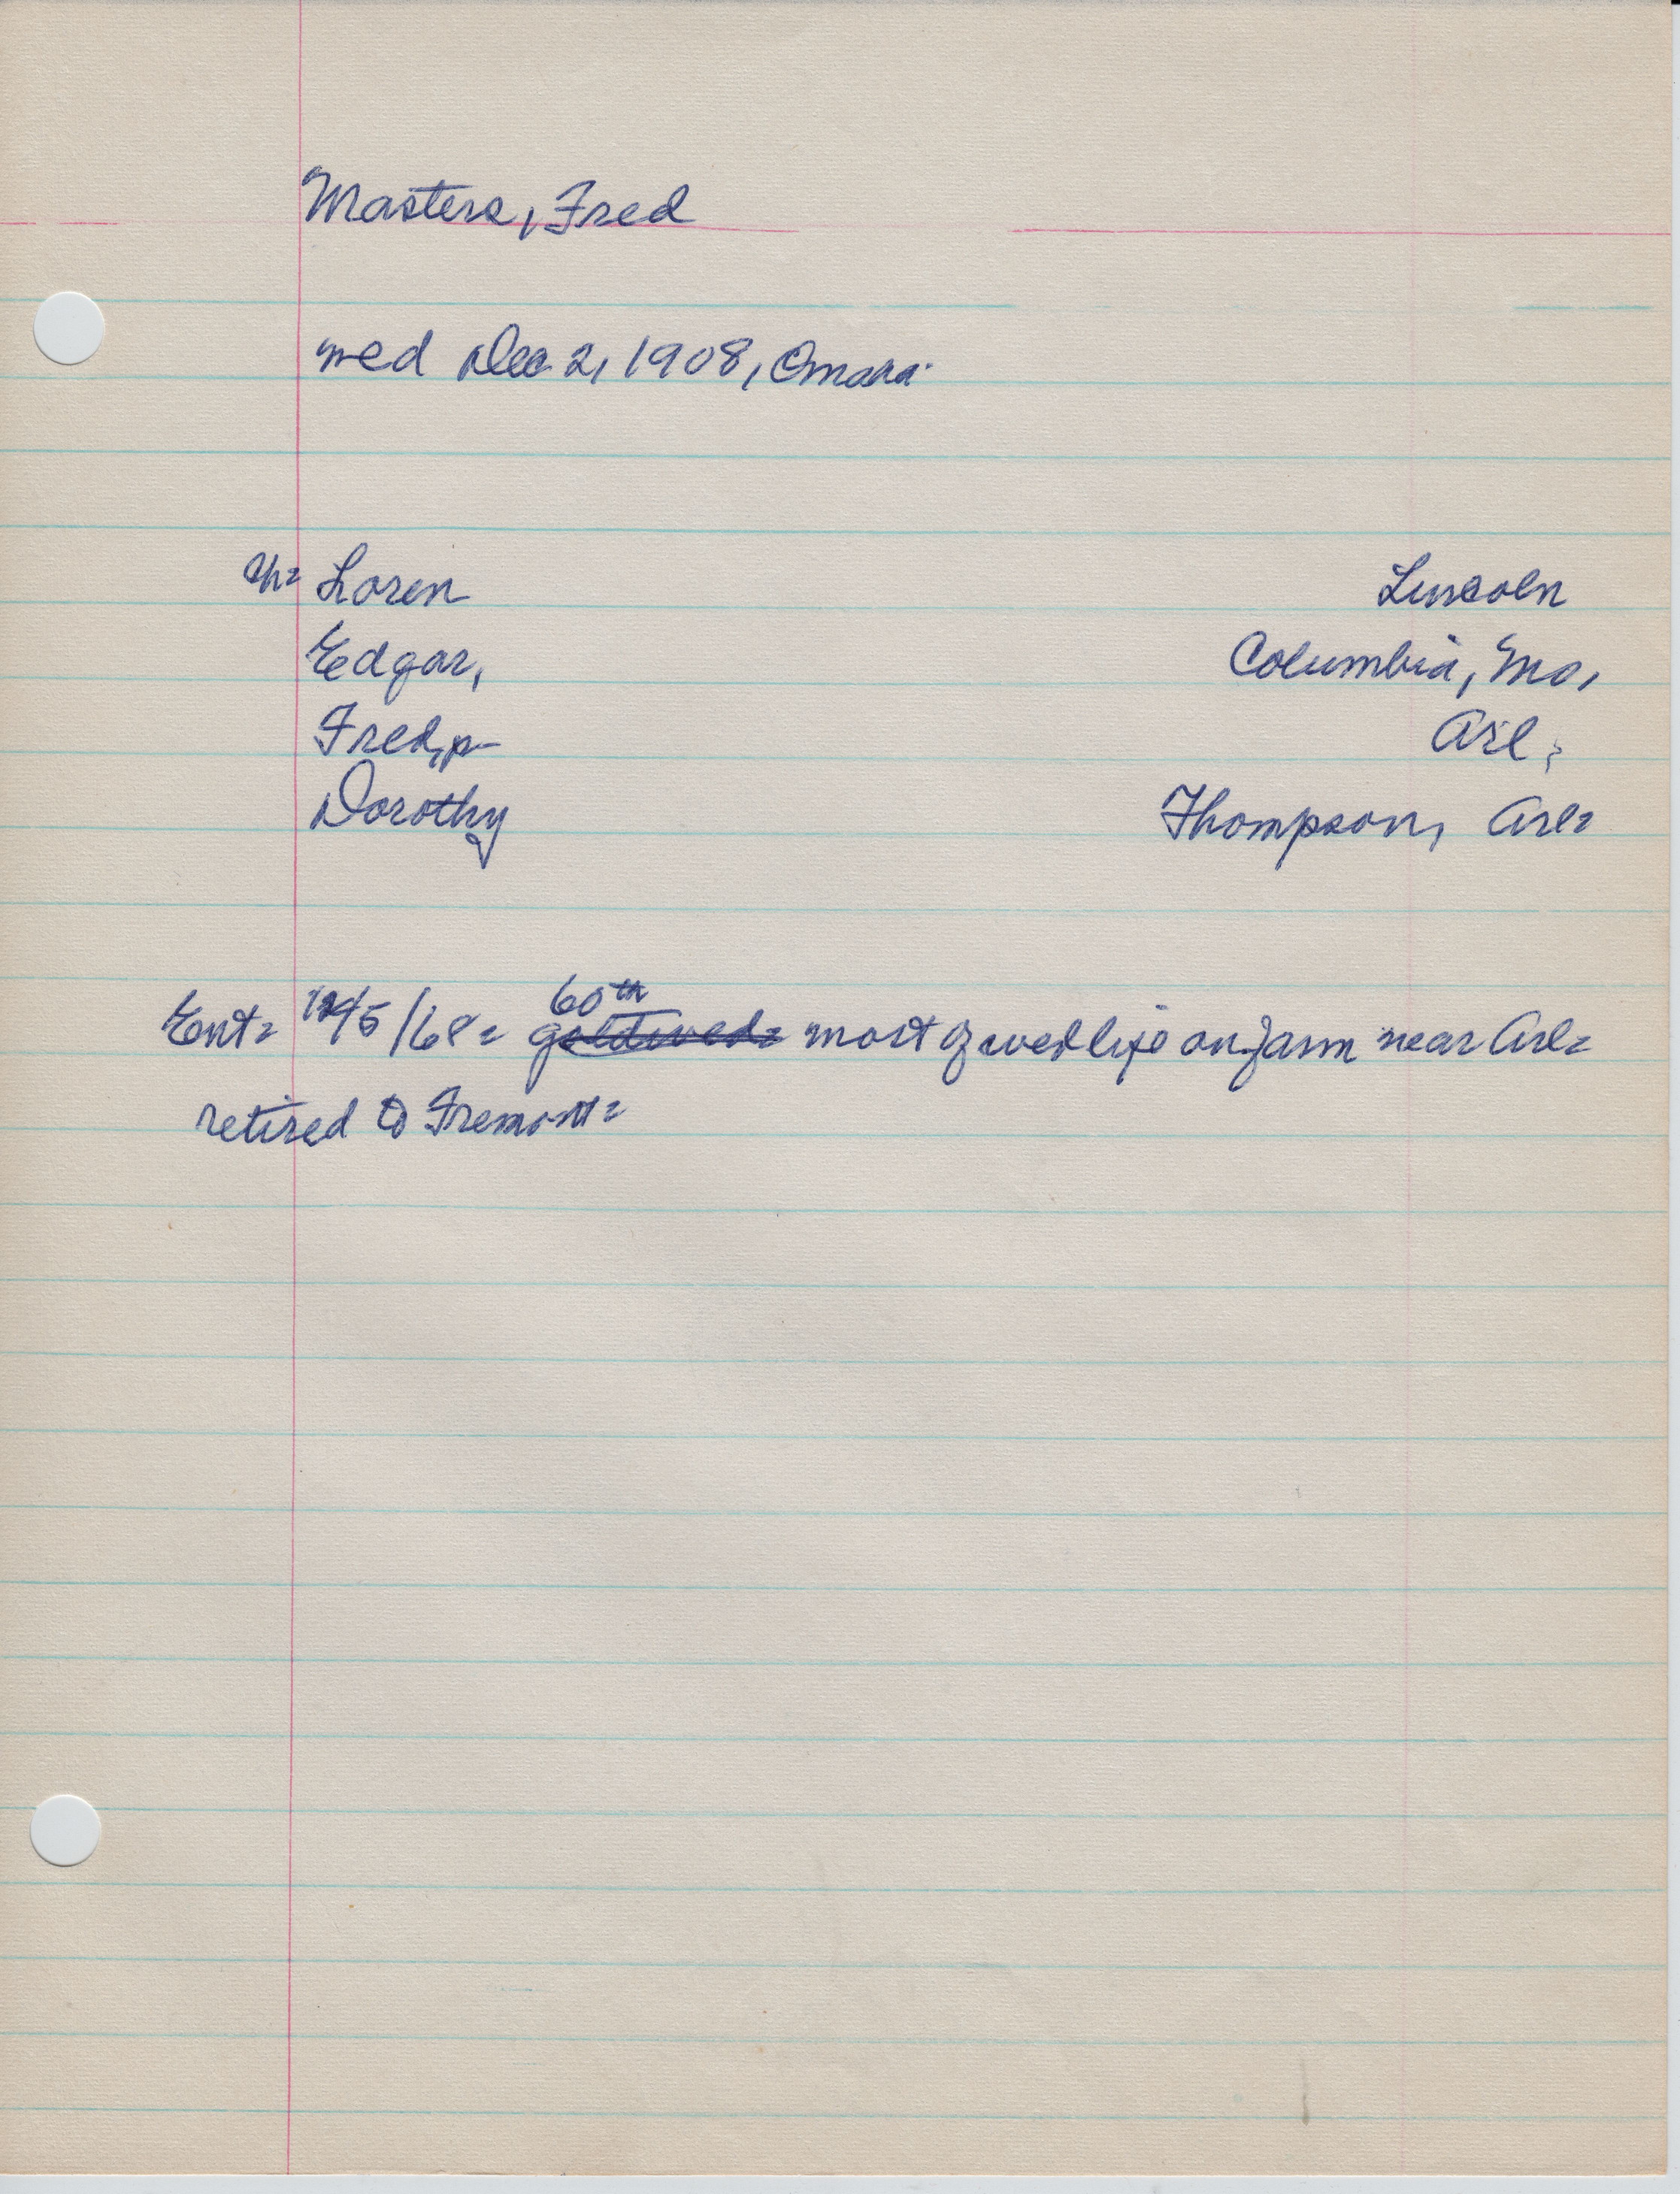 Masters, Fred
wed Dec 2, 1908, Omaha.
Ch= Loren Lincoln
Edgar, Columbia, Mo,
Fred, Arl,
Dorothy Thompson, Arl=
Ent= /68= 60th
gold wed= most of wed life on farm near Arl=
retired to Fremont=